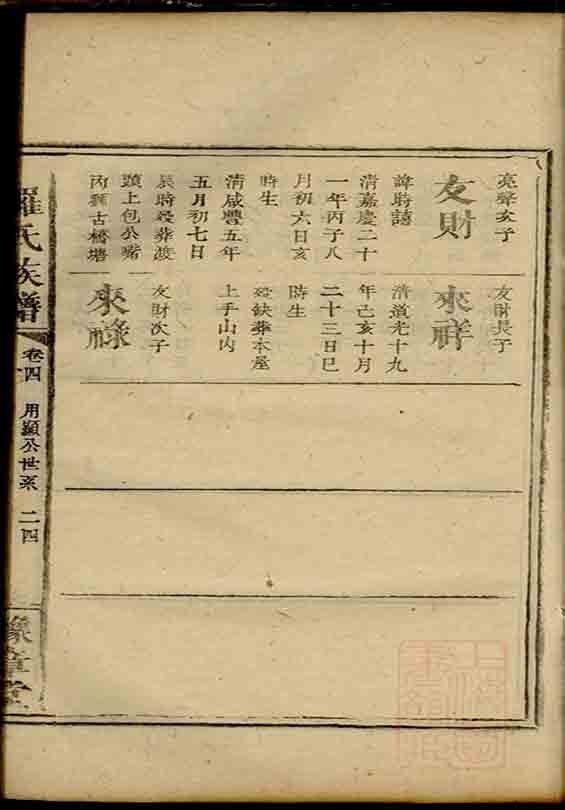 亮聲亥子
友財
諱時譆
清嘉慶二十
一年丙子八
月初六日亥
時生
清咸豐五年
五月初七日
辰時歿葬渡
頭上包公嘴
內種古樁塘
友財長子
來祥
清道光十九
年己亥十月
二十三日巳
時生
歿缺葬本屋
上手山內
友財次子
來祿
羅氏族譜
卷四
用顯公世系
二四
豫章堂